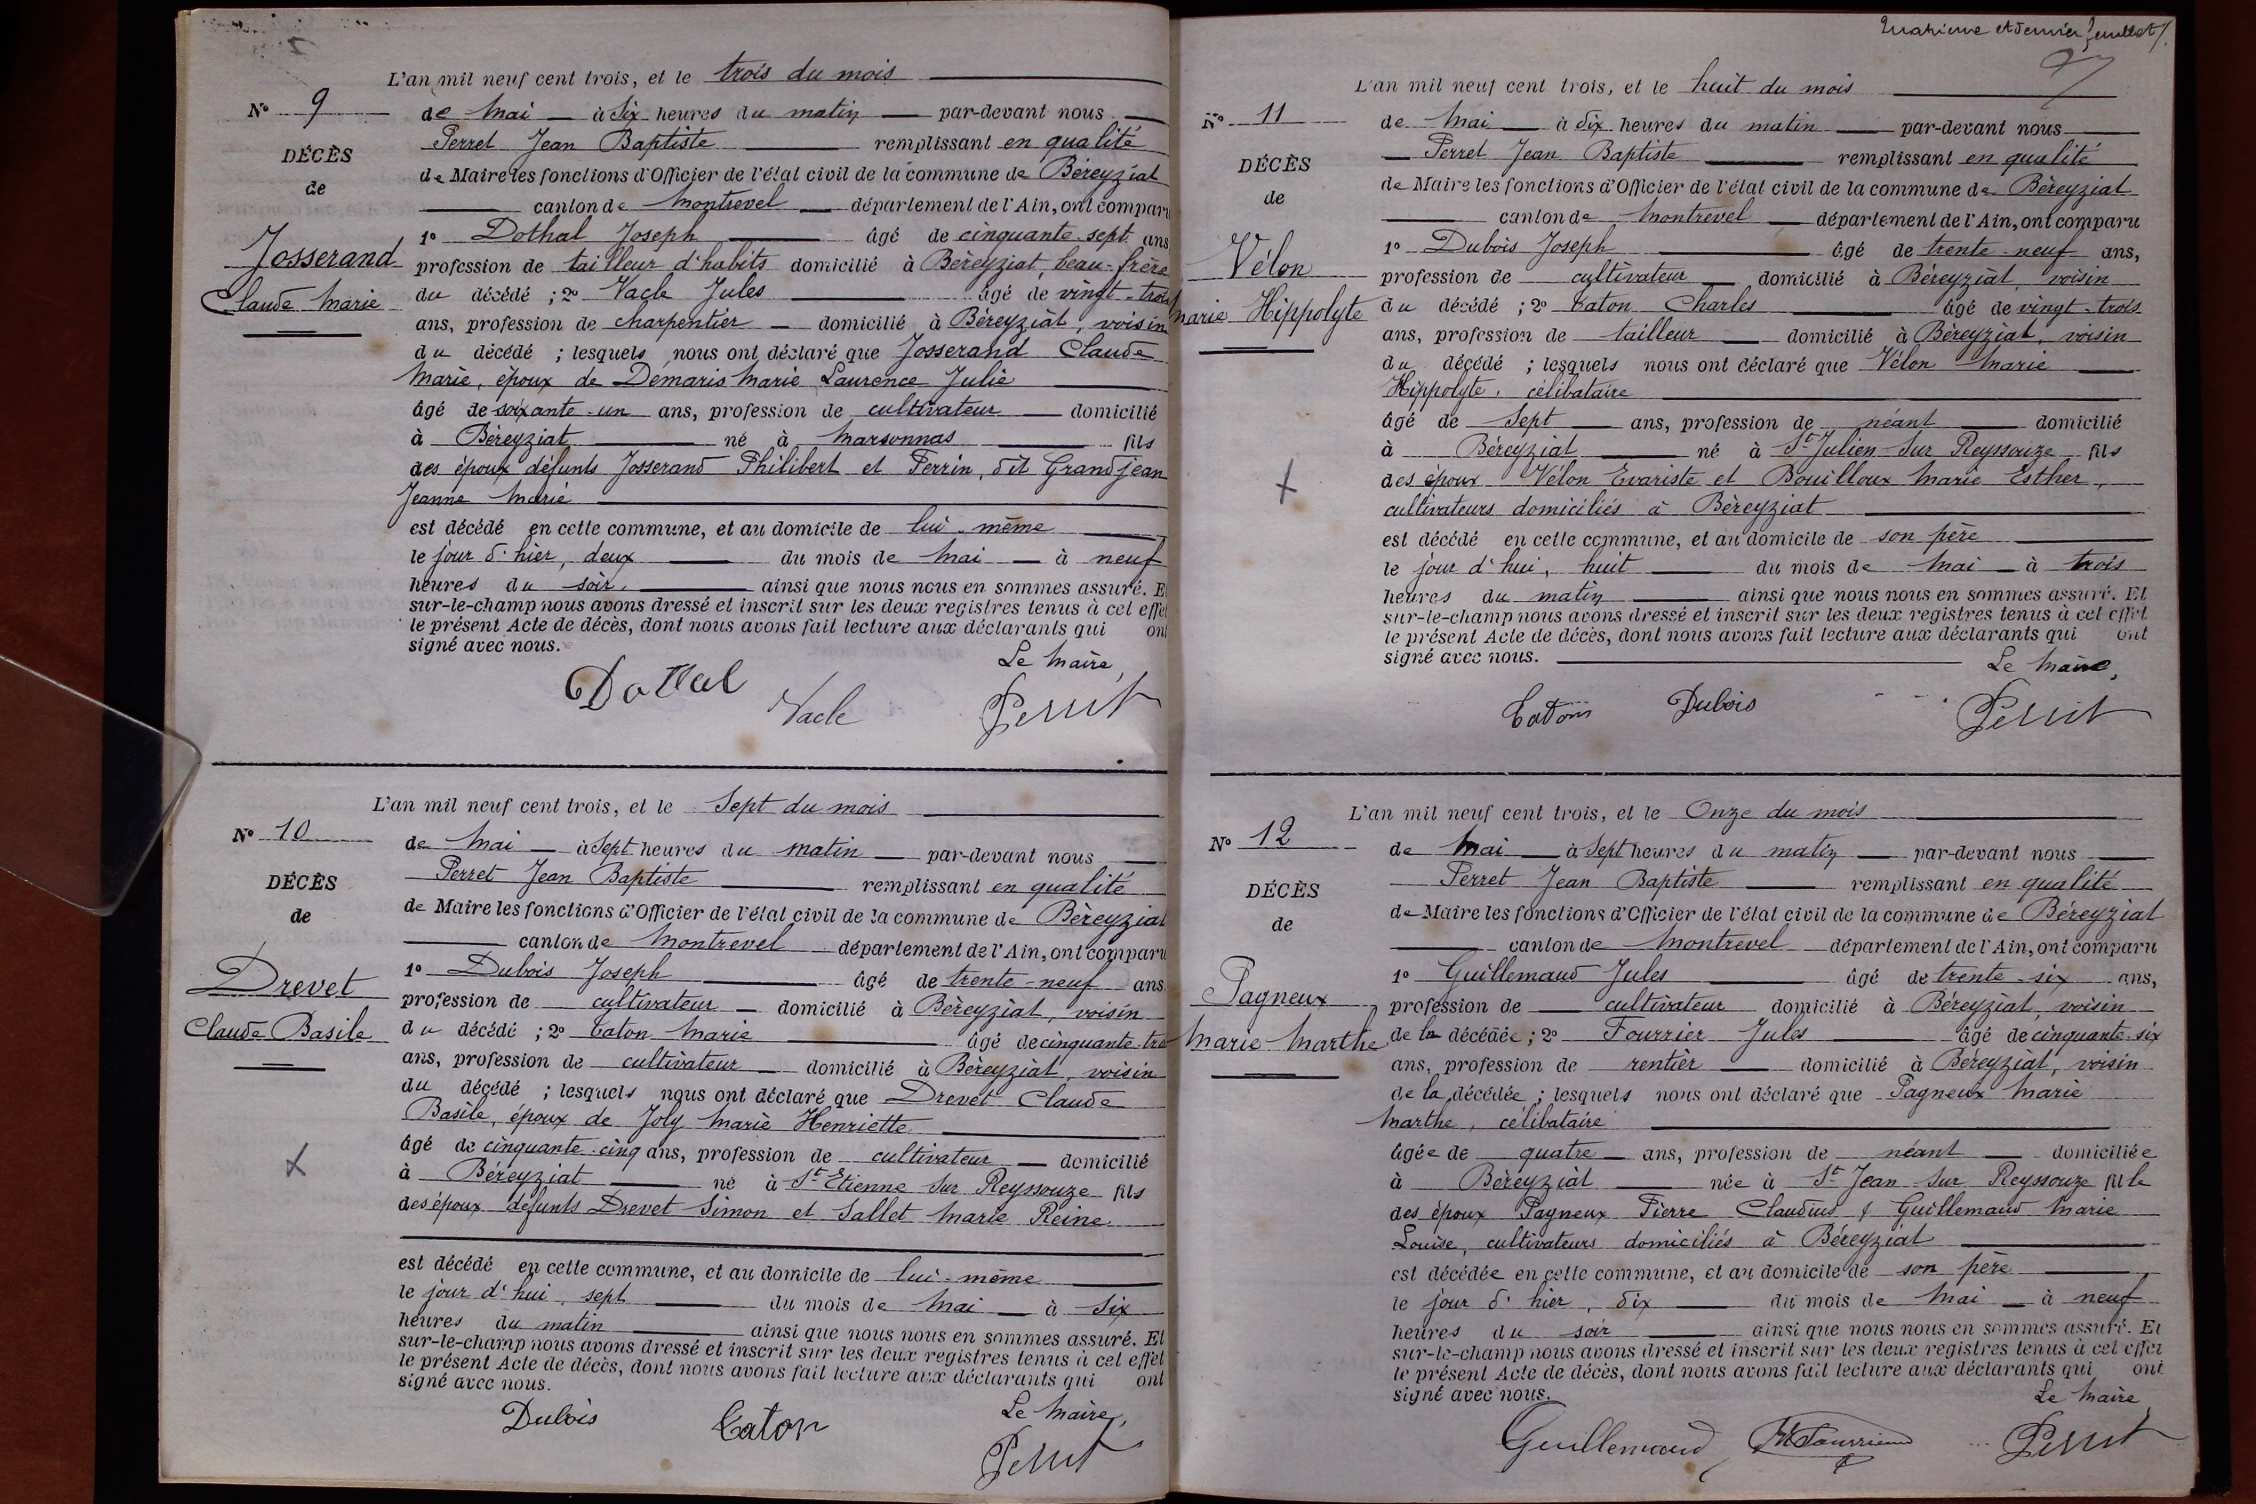 L'an mil neuf cent trois, et le trois du mois
N° 9
de Mai à Six heures du matin par-devant nous
Perret Jean Baptiste remplissant en qualité
DÉCÈS
de Maire les fonctions d'Officier de l'état civil de la commune de Béreyziat
de
canton de Montrevel département de l'Ain, ont comparu
1° Dothal Joseph âgé de cinquante-sept ans
Josserand
profession de tailleur d'habits domicilié à Béreyziat, beau-frère
Claude Marie
du décédé ; 2° Vacle Jules âgé de vingt-trois
ans, profession de charpentier domicilié à Béreyziat, voisin
du décédé ; lesquels nous ont déclaré que Josserand Claude
Marie, époux de Démaris Marie Laurence Julie
âgé de soixante-un ans, profession de cultivateur domicilié
à Béreyziat né à Marsonnas fils
des époux défunts Josserand Philibert et Perrin, dit Grandjean
Jeanne Marie
est décédé en cette commune, et au domicile de lui-même
le jour d'hier, deux du mois de Mai à neuf
heures du soir. ainsi que nous nous en sommes assuré. Et
sur-le-champ nous avons dressé et inscrit sur les deux registres tenus à cet effet
le présent Acte de décès, dont nous avons fait lecture aux déclarants qui ont
signé avec nous.
Le Maire,
Dothal Vacle Perret
L'an mil neuf cent trois, et le Sept du mois
N° 10
de Mai à Sept heures du matin par-devant nous
Perret Jean Baptiste remplissant en qualité
DÉCÈS
de Maire les fonctions d'Officier de l'état civil de la commune de Béreyziat
de
canton de Montrevel département de l'Ain, ont comparu
1° Dubois Joseph âgé de trente-neuf ans
Drevet
profession de cultivateur domicilié à Béreyziat, voisin
Claude Basile
du décédé ; 2° Caton Marie âgé de cinquante-tro
ans, profession de cultivateur domicilié à Béreyziat, voisin
du décédé ; lesquels nous ont déclaré que Drevet Claude
Basile, époux de Joly Marie Henriette
âgé de cinquante-cinq ans, profession de cultivateur domicilié
à Béreyziat né à St Etienne sur Reyssouze fils
des époux défunts Drevet Simon et Sallet Marie Reine
est décédé en cette commune, et au domicile de lui-même
le jour d'hui, sept du mois de Mai à Six
heures du matin ainsi que nous nous en sommes assuré. Et
sur-le-champ nous avons dressé et inscrit sur les deux registres tenus à cet effet
le présent Acte de décès, dont nous avons fait lecture aux déclarants qui ont
signé avec nous.
Le Maire,
Dubois Caton Perret
Quatrième et dernier feuillet
L'an mil neuf cent trois, et le huit du mois
N° 11
de Mai à dix heures du matin par-devant nous
Perret Jean Baptiste remplissant en qualité
DÉCÈS
de Maire les fonctions d'Officier de l'état civil de la commune de Béreyziat
de
canton de Montrevel département de l'Ain, ont comparu
1° Dubois Joseph âgé de trente-neuf ans,
Vélon
profession de cultivateur domicilié à Béreyziat, voisin
Marie Hippolyte
du décédé ; 2° Caton Charles âgé de vingt-trois
ans, profession de tailleur domicilié à Béreyziat, voisin
du décédé ; lesquels nous ont déclaré que Vélon Marie
Hippolyte, célibataire
âgé de Sept ans, profession de néant domicilié
à Béreyziat né à St Julien-sur Reyssouze fils
des époux Vélon Evariste et Bouilloux Marie Esther,
cultivateurs domiciliés à Béreyziat
est décédé en cette commune, et au domicile de son père
le jour d'hui, huit du mois de Mai à trois
heures du matin ainsi que nous nous en sommes assuré. Et
sur-le-champ nous avons dressé et inscrit sur les deux registres tenus à cet effet
le présent Acte de décès, dont nous avons fait lecture aux déclarants qui ont
signé avec nous.
Le Maire,
Caton Dubois Perret
L'an mil neuf cent trois, et le Onze du mois
N° 12
de Mai à Sept heures du matin par-devant nous
Perret Jean Baptiste remplissant en qualité
DÉCÈS
de Maire les fonctions d'Officier de l'état civil de la commune de Béreyziat
de
canton de Montrevel département de l'Ain, ont comparu
1° Guillemaud Jules âgé de trente-six ans,
Pagneux
profession de cultivateur domicilié à Béreyziat, voisin
Marie Marthe
de la décédée ; 2° Fourrier Jules âgé de cinquante-six
ans, profession de rentier domicilié à Béreyziat, voisin
de la décédée ; lesquels nous ont déclaré que Pagneux Marie
Marthe, célibataire
âgée de quatre ans, profession de néant domiciliée
à Béreyziat née à St Jean sur Reyssouze fille
des époux Pagneux Pierre Claudius & Guillemaud Marie
Louise, cultivateurs domiciliés à Béreyziat
est décédée en cette commune, et au domicile de son père
le jour d'hier, dix du mois de Mai à neuf
heures du soir ainsi que nous nous en sommes assuré. Et
sur-le-champ nous avons dressé et inscrit sur les deux registres tenus à cet effet
le présent Acte de décès, dont nous avons fait lecture aux déclarants qui ont
signé avec nous.
Le Maire,
Guillemaud Perret